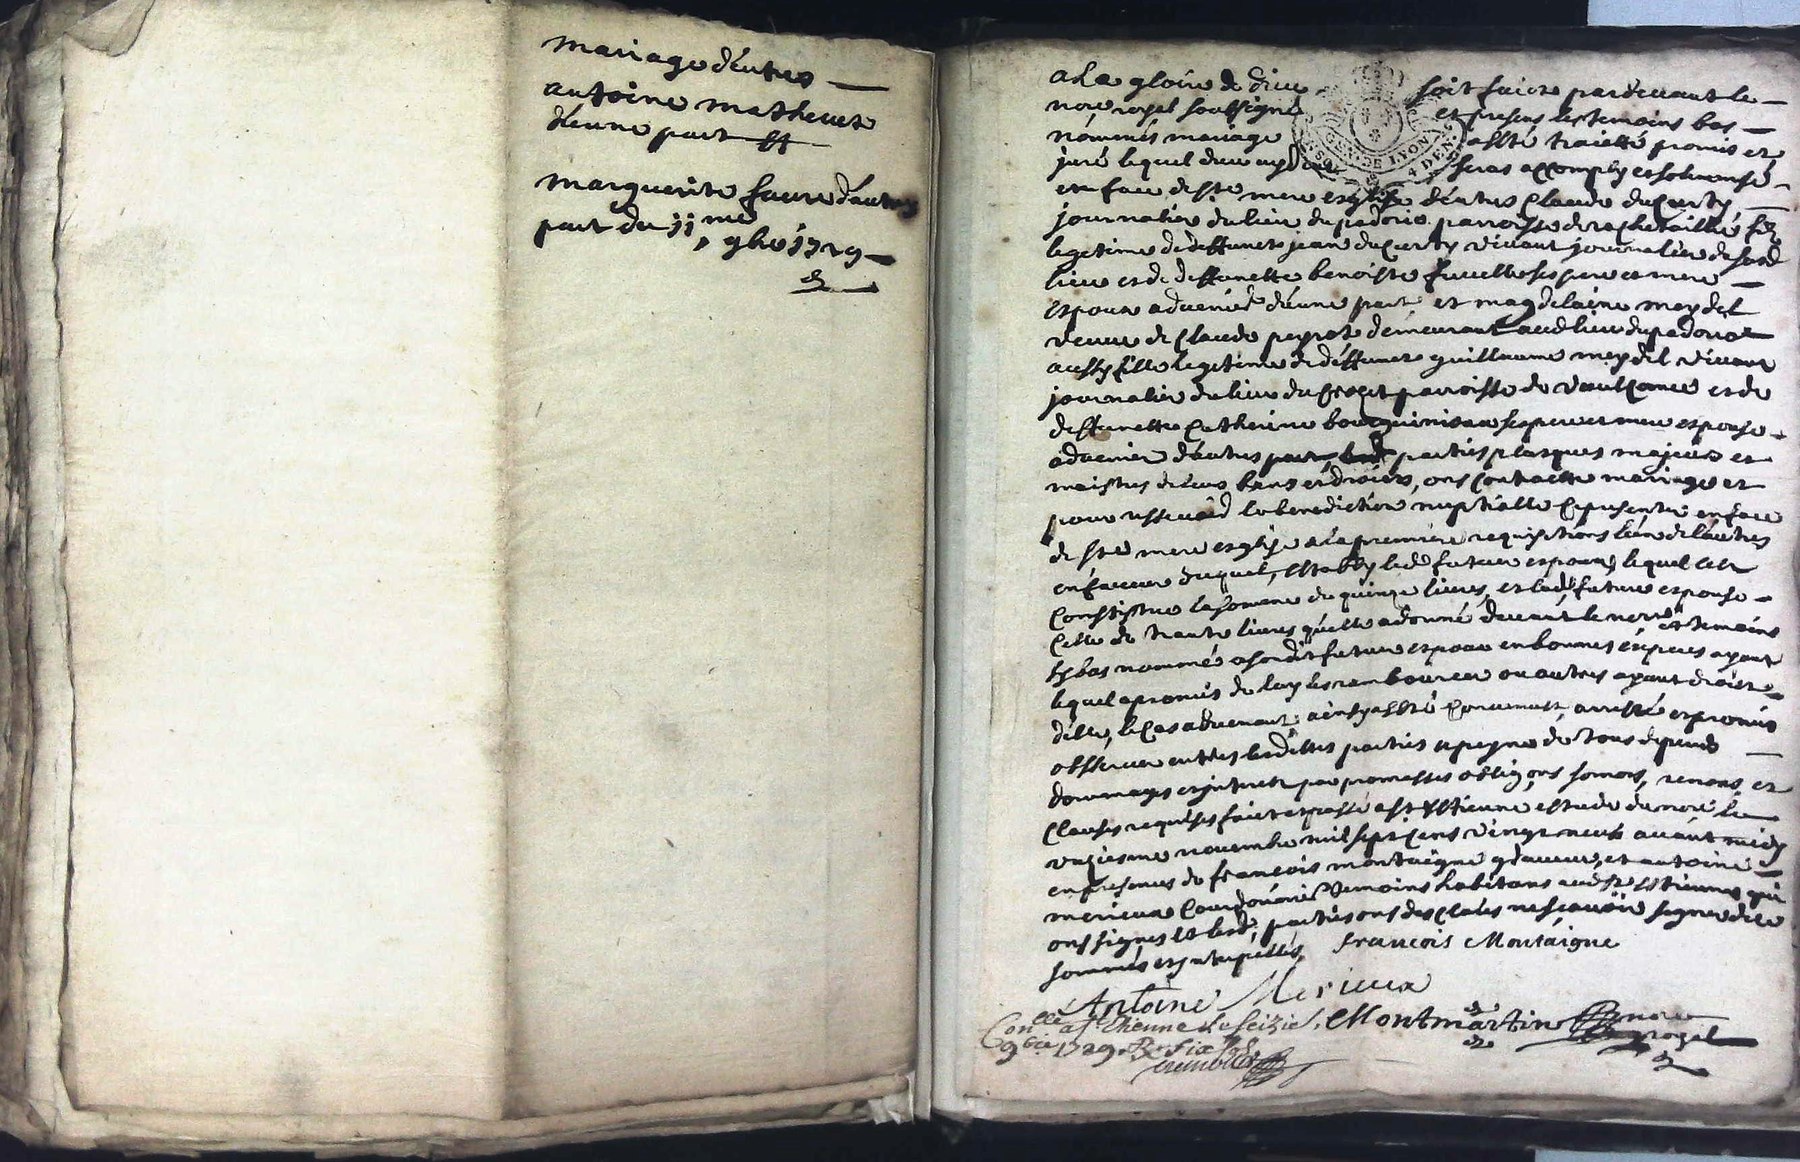 mariage d'entres
antoine mathevet
d'eune part et
marguerite faure d'autres
part du 11me 9bre 1729
a La gloire de dieu soit faicte pardevant le
nore royal soussigné et presens les temoins bas
nommés mariage a esté traietté promis et
juré lequel dieu aydant seras accomply et solemnisé
en face de ste mere esglize d'entres Claude ducurty
journalier du lieu du padoric parroisse de rochetaillié filz
legetime de deffunct jean ducurty vivant journalier dud
lieu et de deffunctte benoiste fucelle ses pere et mere
espoux advenier d'eune part et magdelaine meydel
veuve de Claude peyrot demeurant aud lieu du padoric
aussy fille legetime de deffunct guillaume meydel vivant
journalier du lieu du parroisse de et de
deffunctte Catherine ses pere et mere espouse
advenier d'autres part parties majeurs et
maistres de leurs biens et droicts, ont contractté mariage et
pour ressevoir la benediction nuptialle se presenter en face
de ste mere esglize a la premiere requisitions l'un de l'autres
en faveur duquel, led futeur espoux lequel s'est
Constittue la somme de quinze livres, et lad future espouse
Celle de trante livres qu'elle a donné devant le nore et temoins
sy bas nommés a son dit futeur espoux en bonnes especes ayant
lequel a promis de luy les rembourcer ou autres ayant droict
d'elle, le Cas advenant, ainsy a esté Convenut, arresté et promis
observer entres lesdittes parties a peyne de tous depends
dommages et jnterest par promesses obligons, soms, renons, et
Clauses requises faict et passé a st Estienne estude du nore le
unziesme novembre mil sept cens vingt neufs avant midy
en presences de françois montaigne graveur, et antoine
merieux Courdonnier temoins habitans aud st Estienne qui
ont signés et lesd, parties ont desclarés ne scavoir signer de ce
sommés et jnterpellés
françois Montaigne
Antoine Merieux
Montmartin nore royal
Conllé a St Etienne le seizie
9bre 1729 Rx six s